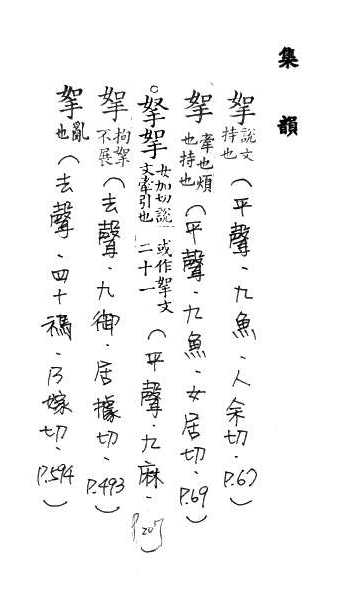 集韻
挐說文持也（平聲．九魚．人余切．P.67）
挐牽也煩也持也（平聲．九魚．女居切．P.69）
。拏挐女加切說文牽引也或作挐文二十一（平聲．九麻．P.207）
挐拘挐不展（去聲．九御．居據切．P.493）
挐亂也（去聲．四十禡．乃嫁切．P.594）